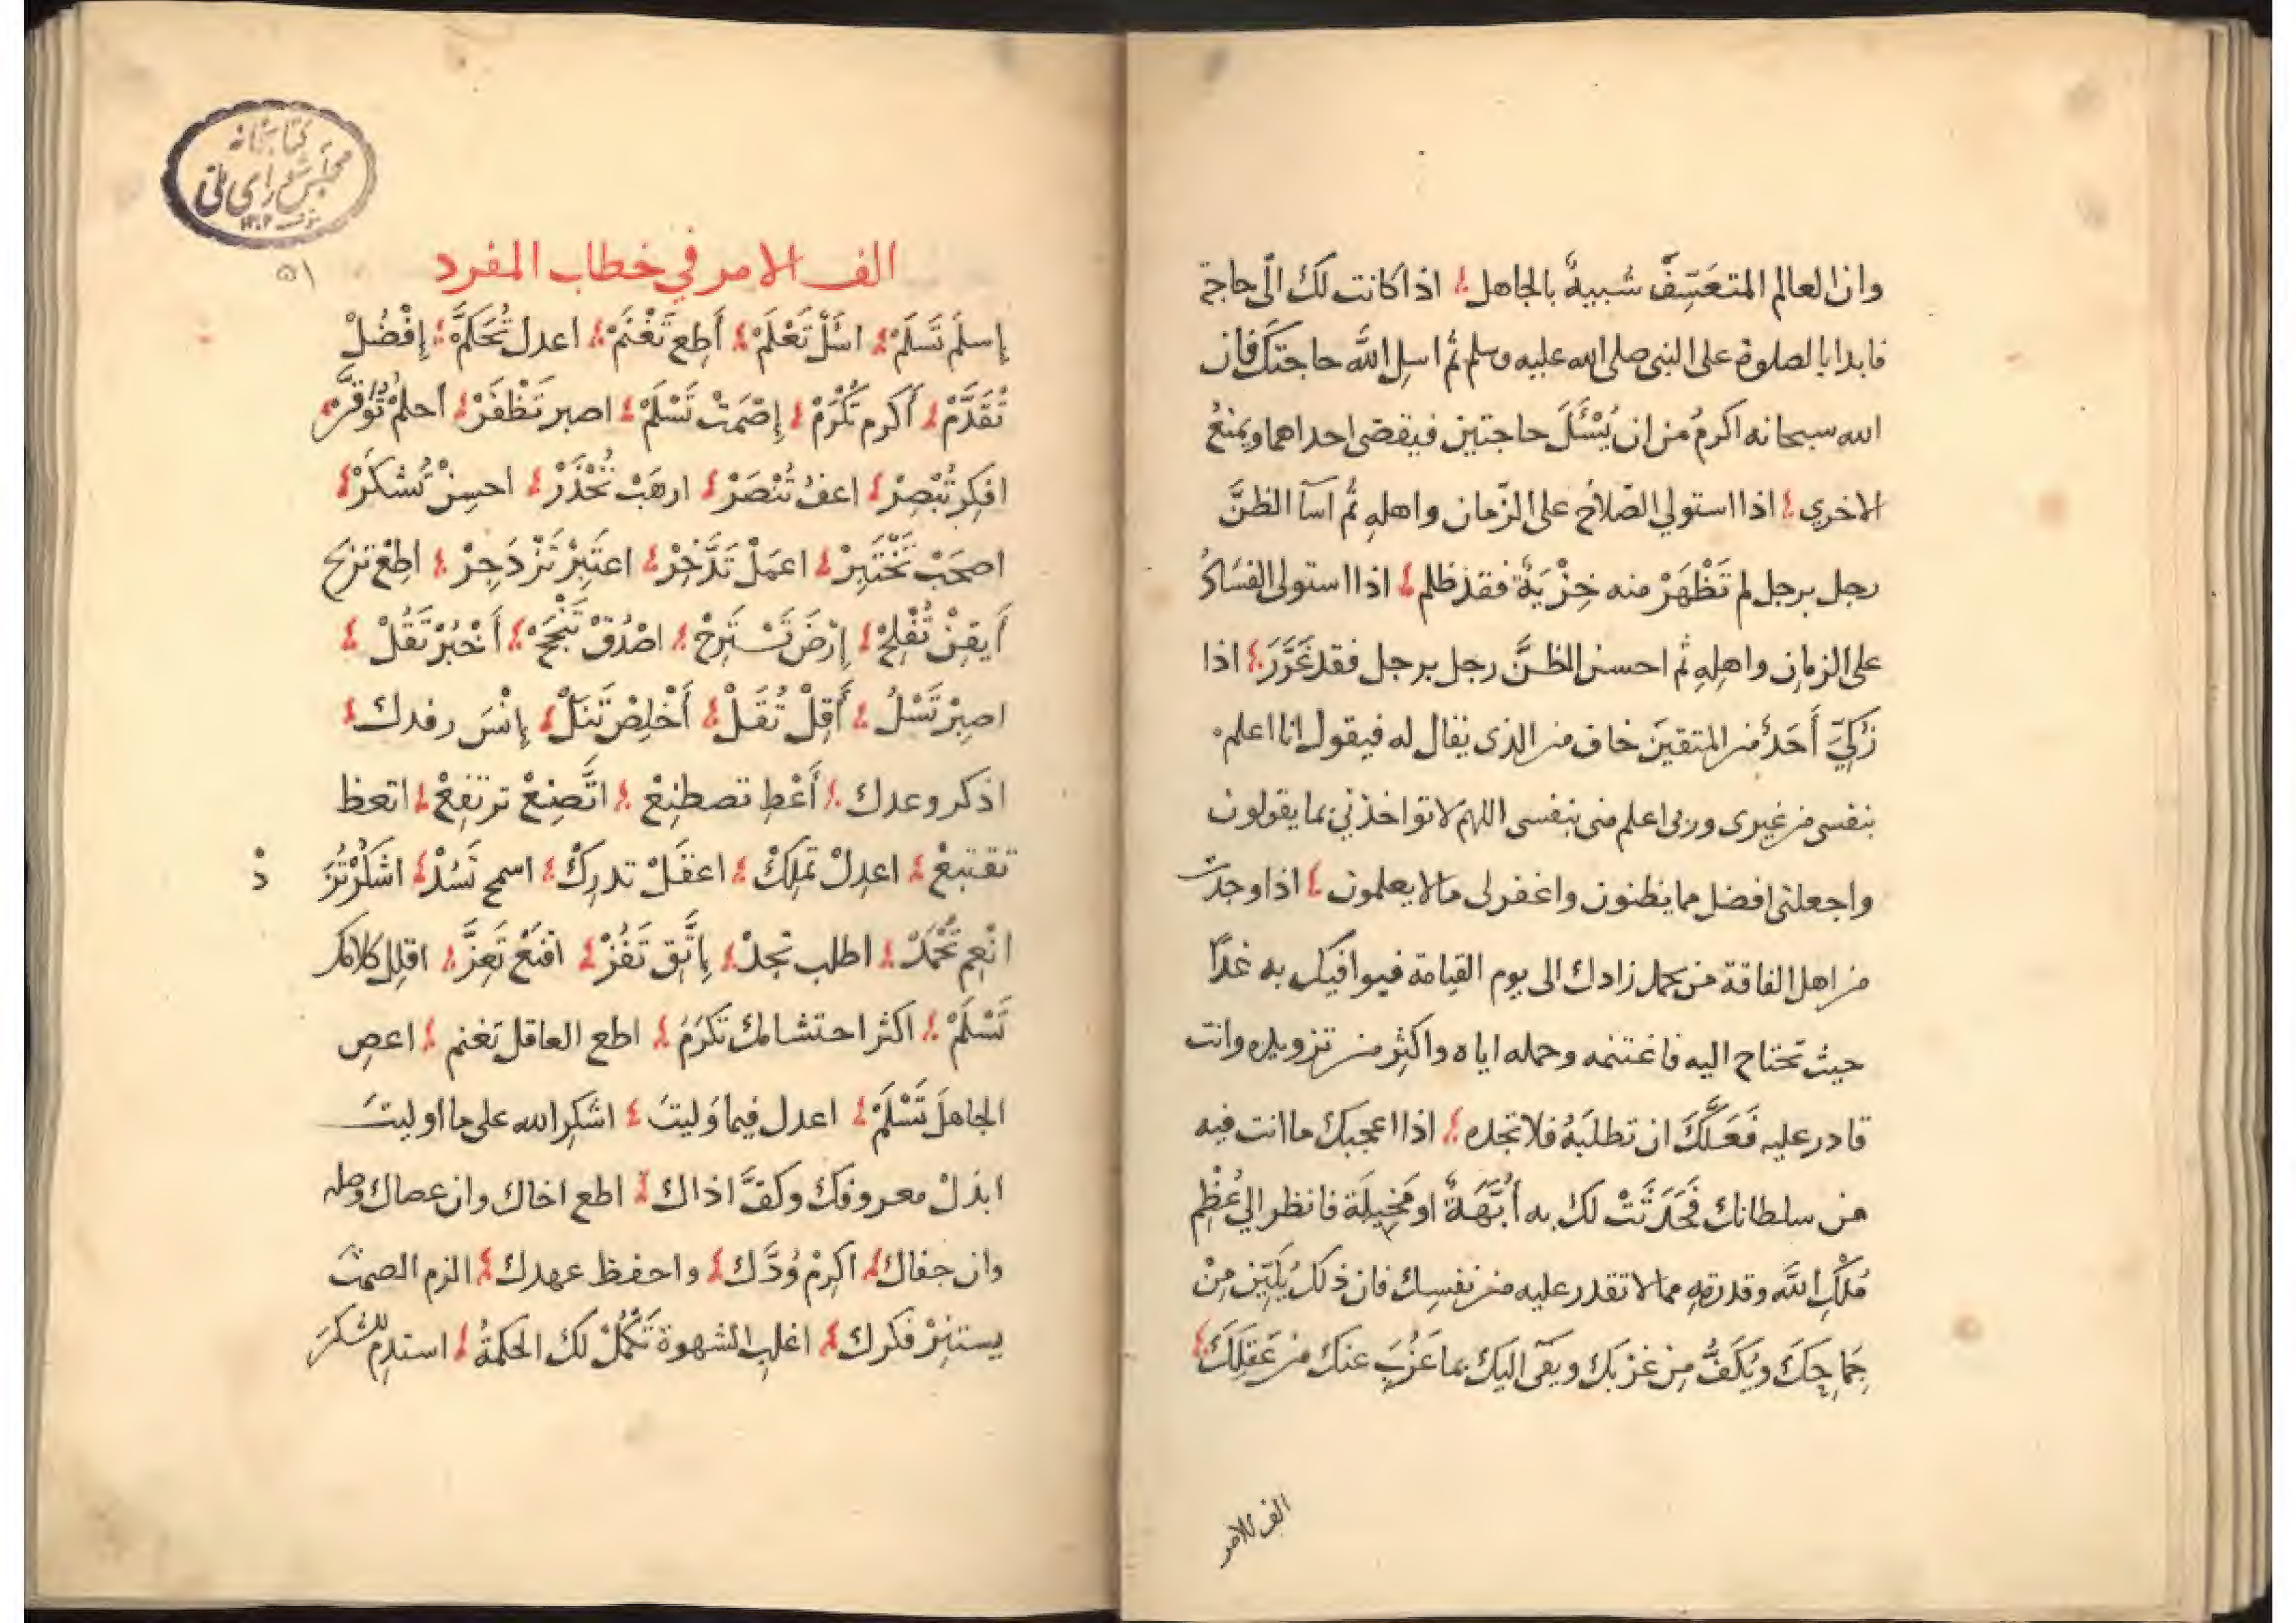 وان العالم المتعَسِّفَ شبيهٌ بالجاهل اذا كانت لك الى حاجة
فابدا بالصلوة على النبى صلى الله عليه وسلم ثم اسل الله حاجتك فان
الله سبحانه اكرمُ من ان يُسْئَلَ حاجتين فيقضى احداهما ويمنعُ
الاخري اذا استولي الصّلاح على الزّمان واهلهِ ثم اسآ الظنَّ
رجل برجل لم تَظْهَرْ منه خِزْيَةٌ فقد ظلم اذا استولى الفسَادُ
على الزمان واهلِهِ ثم احسن الظنَّ رجل برجل فقد غَرَّرَ اذا
زُكِّيَ أَحَدٌ من المتقينَ خاف من الذى يقال له فيقول انا اعلم
بنفسى من غيرى وربى اعلم منى بنفسى اللهم لا تواخذنى بما يقولون
واجعلنى افضل مما يظنون واغفر لى ما لا يعلمون اذا وجدت
من اهل الفاقة من يحمل زادك الى يوم القيامة فيوافيك به غدًا
حيث تحتاج اليه فاغتنمه وحمله اياه واكثِر من تزويده وانت
قادر عليه فَعَلَّكَ ان تطلبَهُ فلا تجده اذا اعجبك ما انت فيه
من سلطانك فَحَدَثَتْ لك به أُبَّهَةٌ او مَخِيلَة فانظر الي عُظْمِ
مُلْكِ الله وقدرتهِ مما لا تقدر عليه من نفسِك فان ذلك يُلَيِّن مِنْ
جِمَاحِكَ ويَكَفُّ مِن غرْبك ويفى اليك بما عَزُبَ عنك من عَقلِكَ
الف الامر
كتابخانه
مجلس شوراى ملى
١٣٠٢
٥١
الف الامر في خطاب المفرد
إسلَم تَسلَمْ اسْئَلْ تَعْلَمْ أَطِع تَغْنَمْ اعدل تُحَكَّمْ إفْضُلْ
تُقَدَّمْ أَكرم تُكْرَمْ إصْمَتْ تَسْلَمْ اصبر تَظْفَرْ احلُمْ تُوَقَّرْ
افكِر تُبْصِرْ اعفُ تُنْصَرْ ارهَبْ تُحْذَرْ احسِنْ تُشكَرْ
اصحَبْ تَخْتَبِرْ اعمَلْ تَدَّخِرْ اعتَبِرْ تَزْدَجِرْ اطِعْ تربح
أَيقِنْ تُفْلِحْ إرْضَ تَسْتَرِحْ اصْدُقْ تَنْجَحْ أَخْبُرْ تَقُلْ
اصبِرْ تَسْلُ أَقِلْ تُقَلْ أَخْلِصْ تَنَلْ إنْسَ رفدك
اذكر وعدك أَعْطِ تصطنِعْ اتَّضِعْ ترتفِعْ اتعظ
تقتنِعْ اعدِلْ تَملِكْ اعقَلْ تدرِكْ اسمح تَسُدْ اشكُرْ تُزَدْ
انْعِم تُحْمَدْ اطلب تجدْ إتَّقِ تَفُزْ اقنَعْ تَعِزَّ اقلِل كلامك
تَسْلَمْ اكثر احتشامك تكرَمْ اطع العاقل تغنم اعصِ
الجاهلَ تَسْلَمْ اعدل فيما وَليتَ اشكرِ الله على ما اوليتَ
ابذلْ معروفكَ وكفَّ اذاك اطع اخاك وان عصاك وصله
وان جفاك اكرِمْ وُدَّك واحفظ عهدك الزم الصمتَ
يستنِرْ فكرك اغلِب الشهوة تَكْمُلْ لك الحكمةُ استدِم الشكرَ